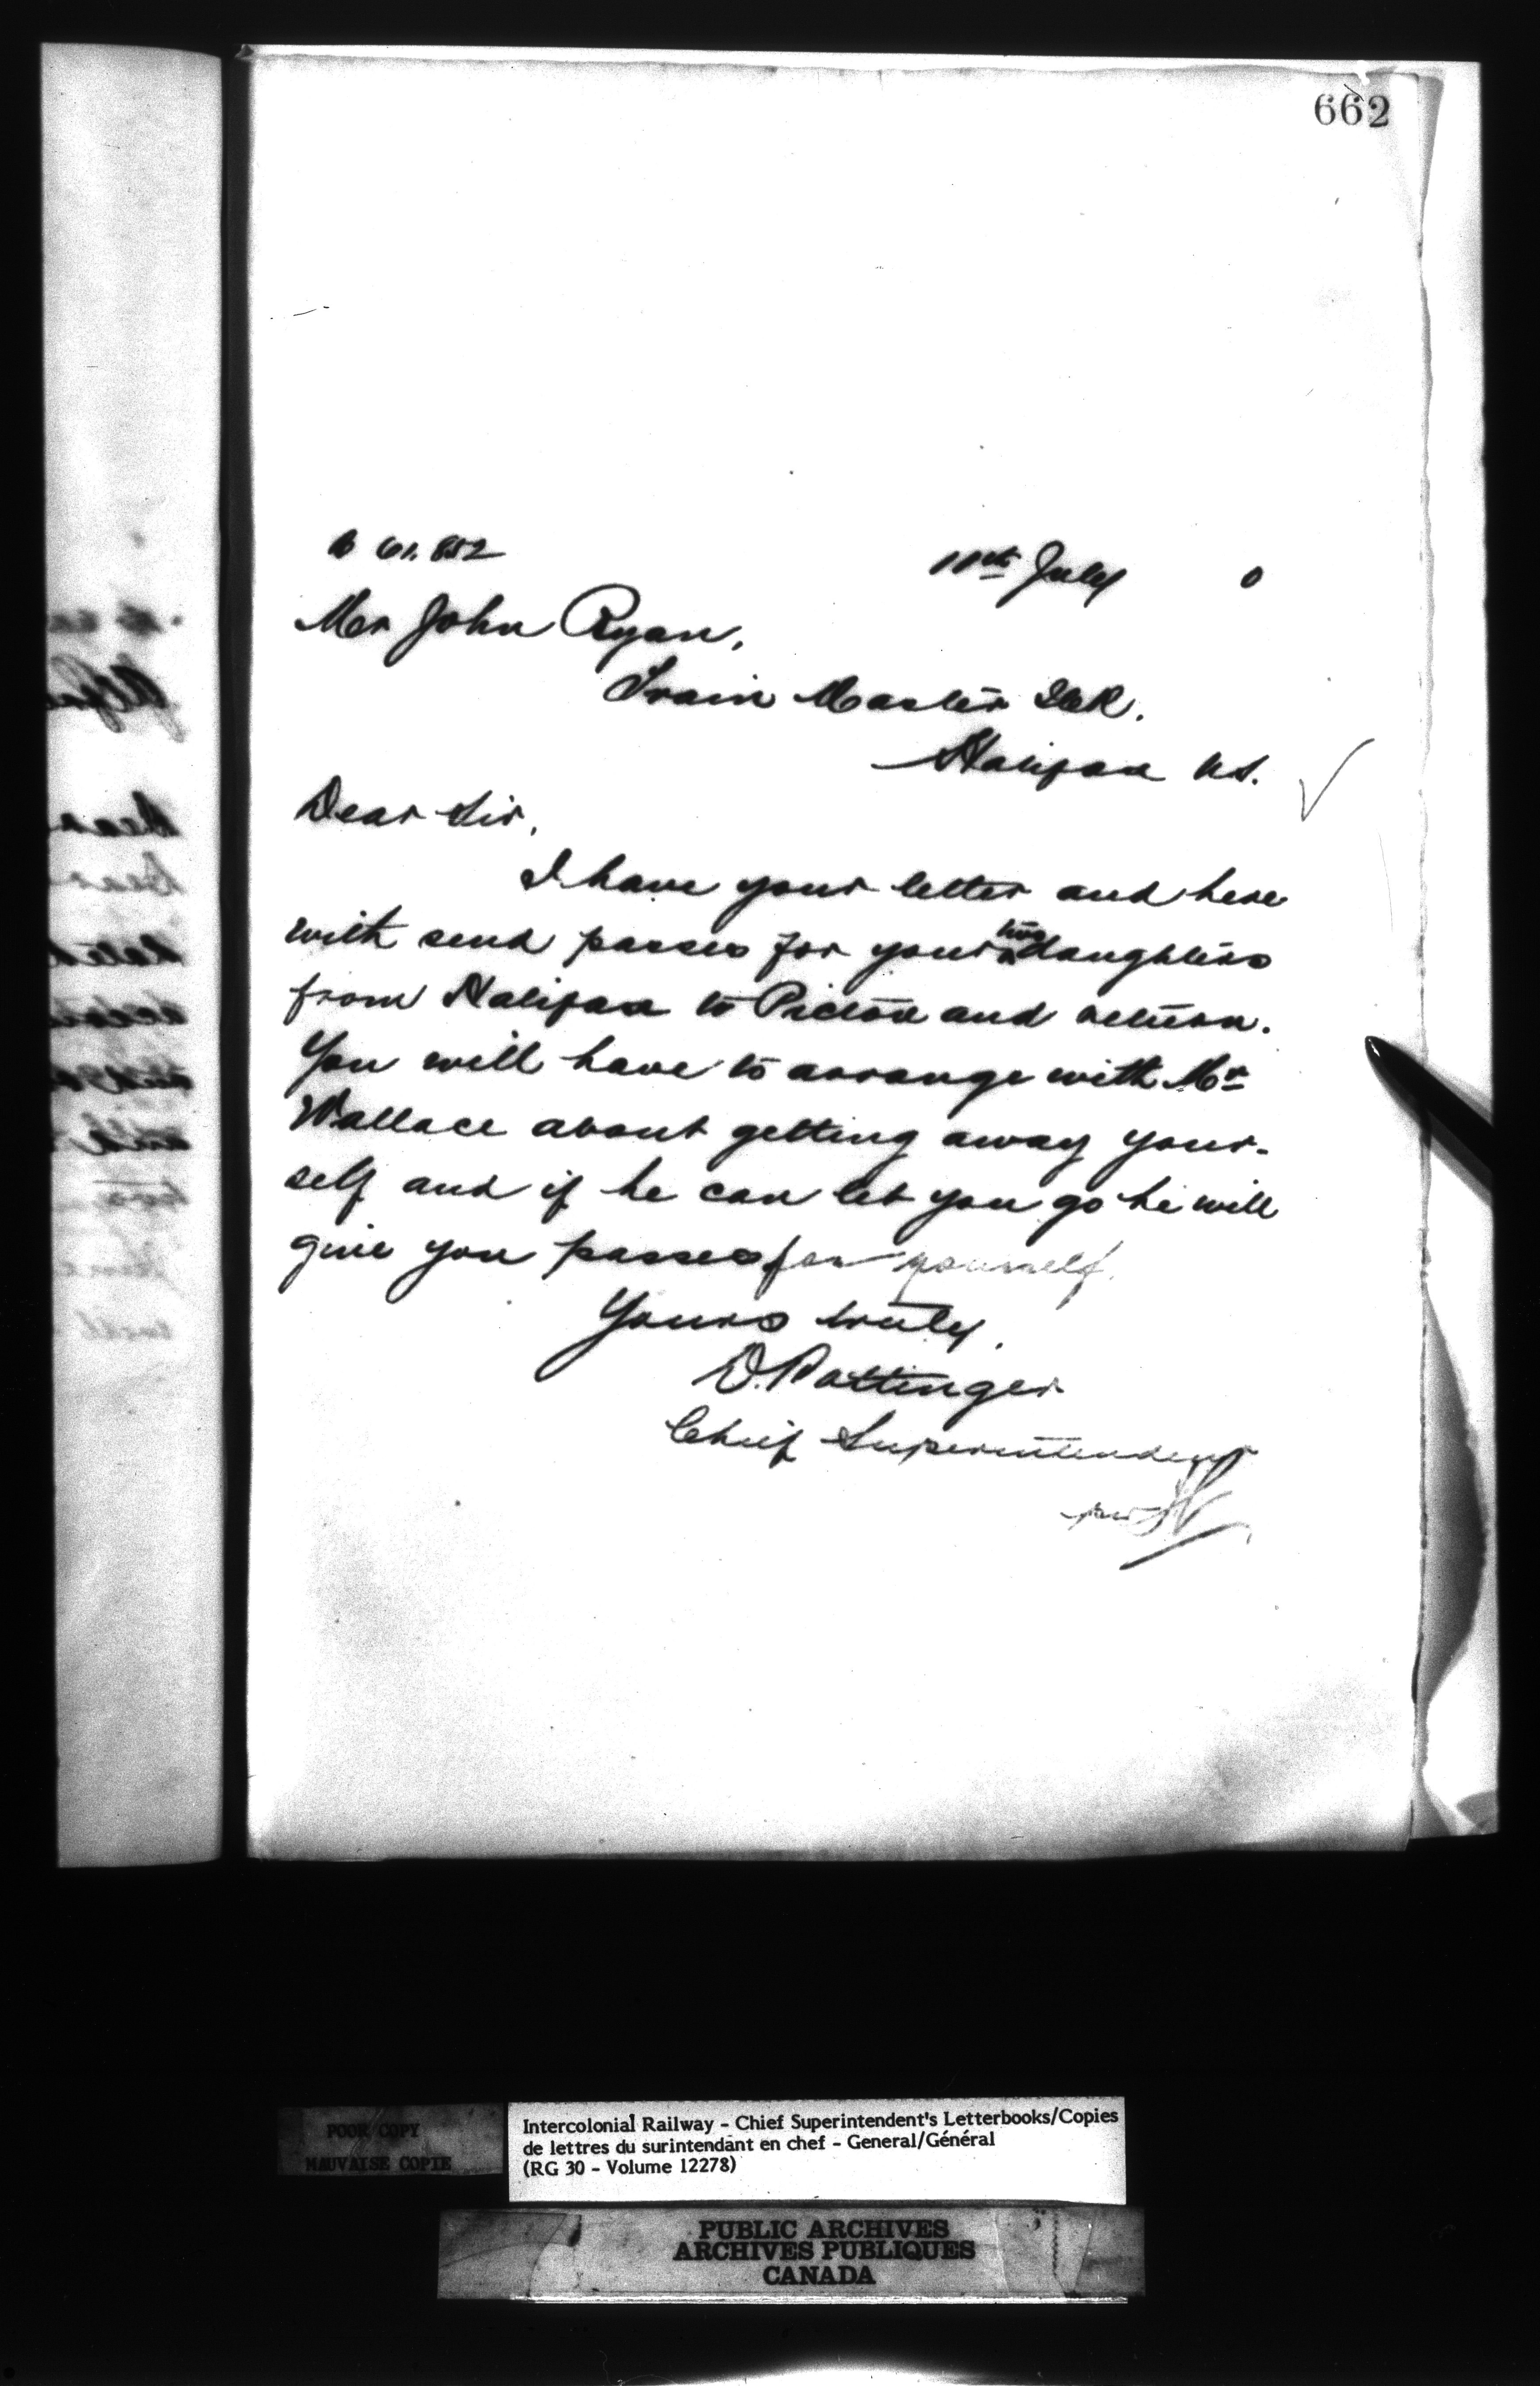 662
61.852
11th July 0
Mr John Ryan,
Train Master ICR.
Halifax NS.
Dear Sir,
I have your letter and here
with send passes for your two daughters
from Halifax to Pictou and return.
You will have to arrange with Mr
Wallace about getting away your-
self and if he can let you go he will
give you passes for yourself.
Yours truly,
D. Pottinger
Chief Superintendent
per
POOR COPY
MAUVAISE COPIE
Intercolonial Railway - Chief Superintendent's Letterbooks/Copies
de lettres du surintendant en chef - General/Général
(RG 30 - Volume 12278)
PUBLIC ARCHIVES
ARCHIVES PUBLIQUES
CANADA